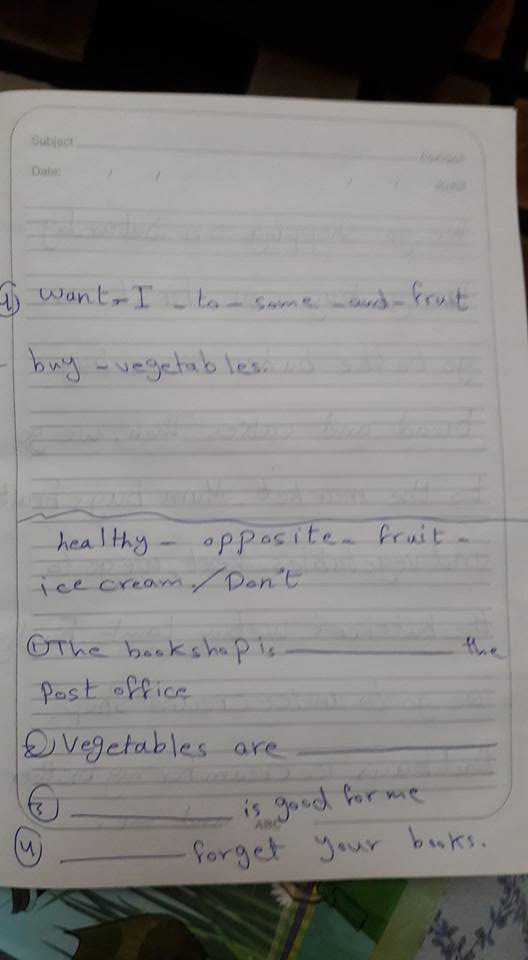 Subject
Date: / /
4) want - I - to - some - and - fruit
buy - vegetables.
healthy - opposite - fruit -
ice cream / Don't
① The bookshop is ______ the
Post office
② Vegetables are ______
③ ______ is good for me
ABC
④ ______ forget your books.